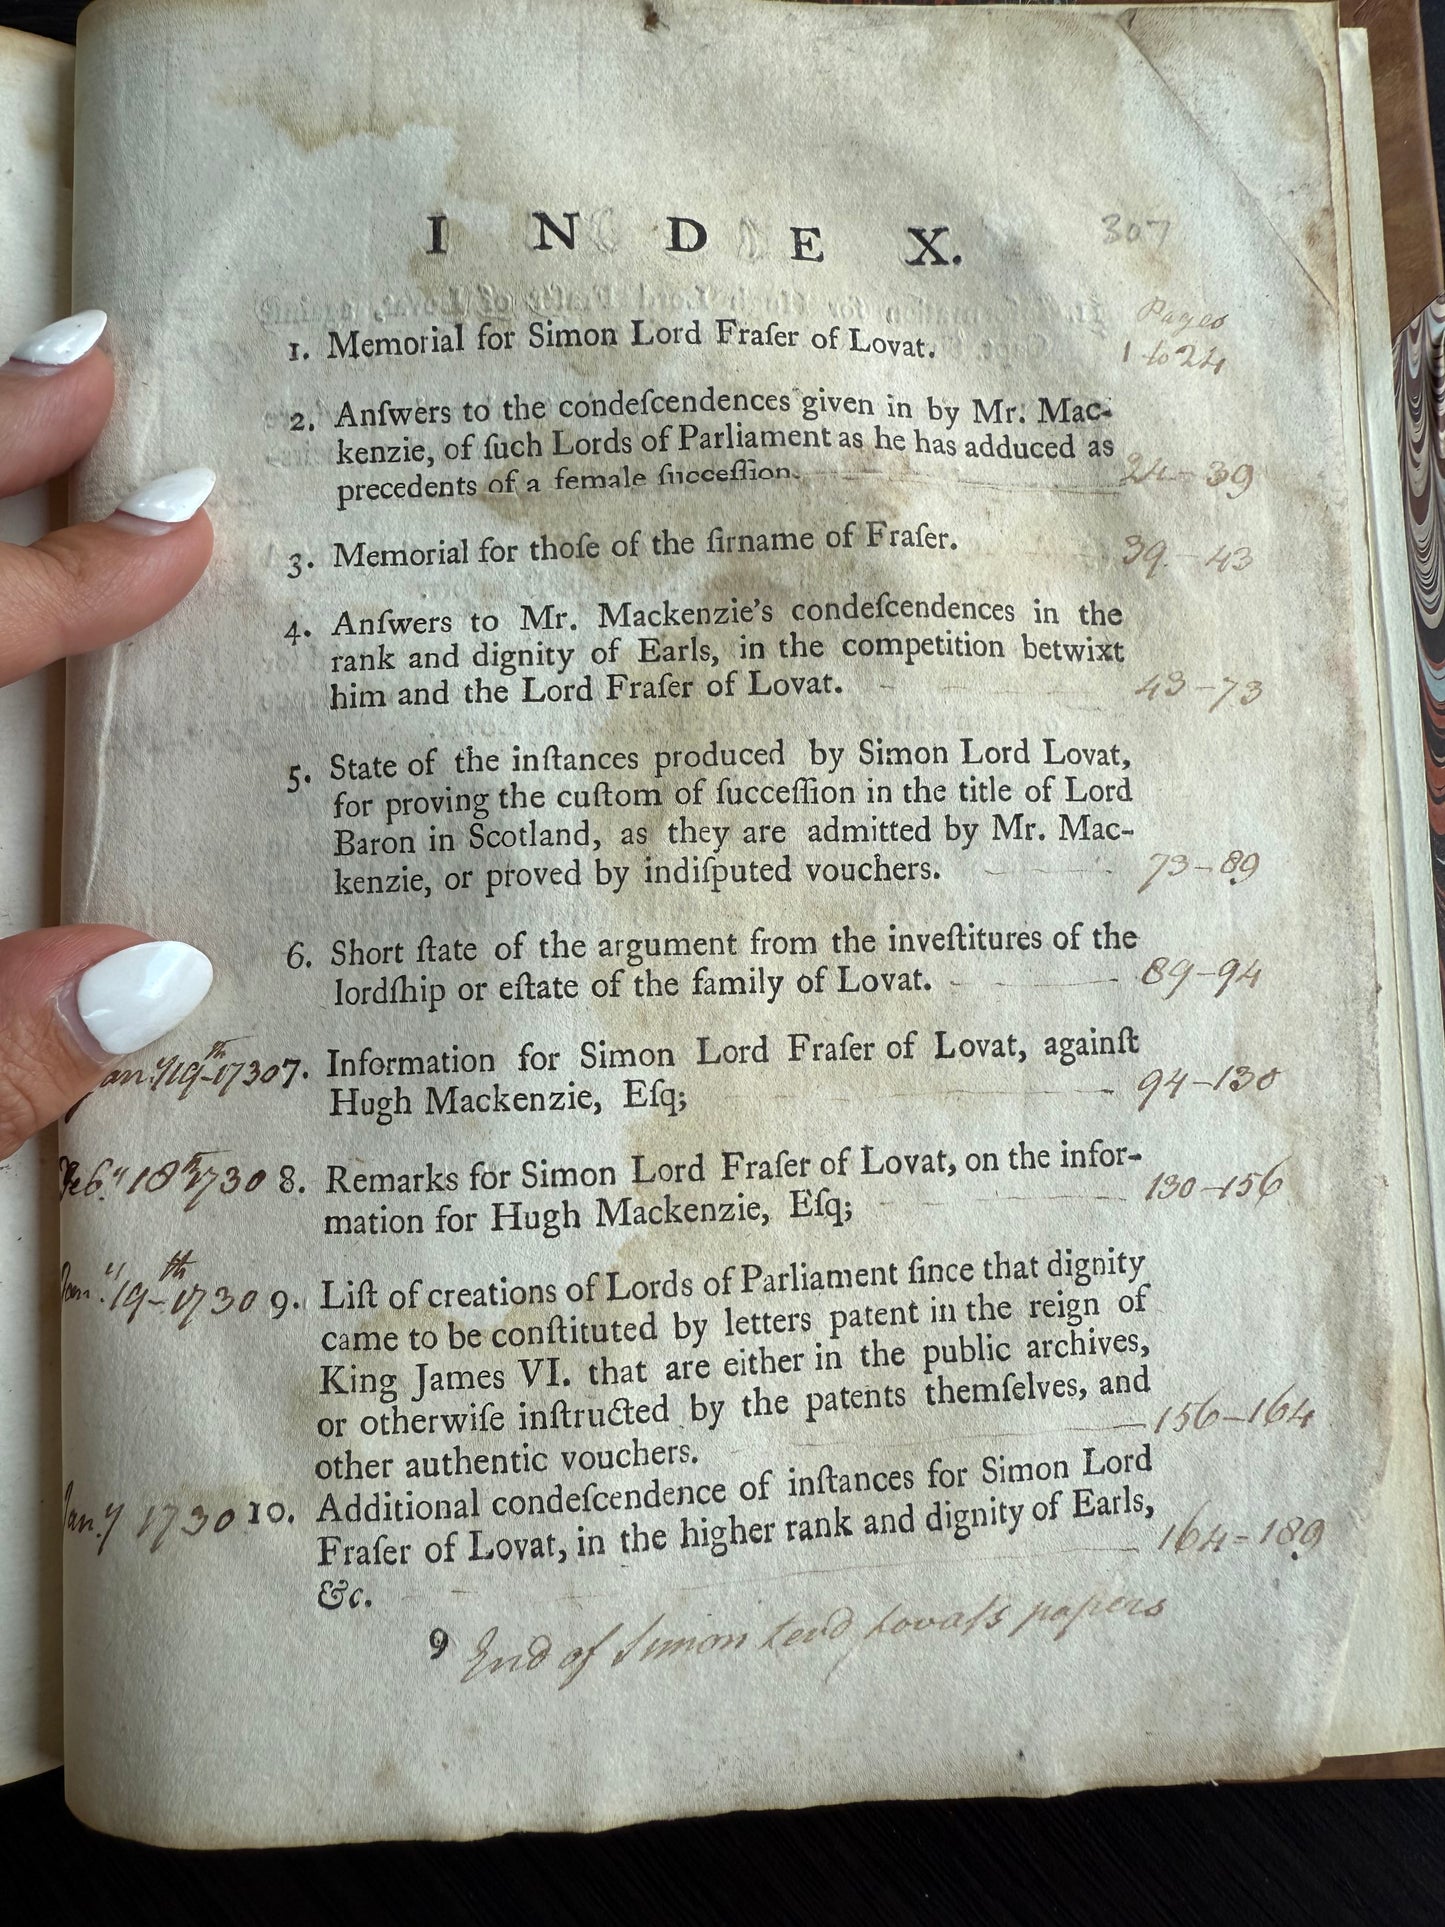 I N D E X.
307
Pages
1. Memorial for Simon Lord Fraſer of Lovat. 1 to 24
2. Anſwers to the condeſcendences given in by Mr. Mac-
kenzie, of ſuch Lords of Parliament as he has adduced as
precedents of a female ſucceſſion. 24-39
3. Memorial for thoſe of the ſirname of Fraſer. 39-43
4. Anſwers to Mr. Mackenzie's condeſcendences in the
rank and dignity of Earls, in the competition betwixt
him and the Lord Fraſer of Lovat. 43-73
5. State of the inſtances produced by Simon Lord Lovat,
for proving the cuſtom of ſucceſſion in the title of Lord
Baron in Scotland, as they are admitted by Mr. Mac-
kenzie, or proved by indiſputed vouchers. 73-89
6. Short ſtate of the argument from the inveſtitures of the
lordſhip or eſtate of the family of Lovat. 89-94
Jan.y 19th 1730 7. Information for Simon Lord Fraſer of Lovat, againſt
Hugh Mackenzie, Eſq; 94-130
Feb.y 18th 1730 8. Remarks for Simon Lord Fraſer of Lovat, on the infor-
mation for Hugh Mackenzie, Eſq; 130-156
Jan.y 19th 1730 9. Liſt of creations of Lords of Parliament ſince that dignity
came to be conſtituted by letters patent in the reign of
King James VI. that are either in the public archives,
or otherwiſe inſtructed by the patents themſelves, and
other authentic vouchers. 156-164
Jan.y 1730 10. Additional condeſcendence of inſtances for Simon Lord
Fraſer of Lovat, in the higher rank and dignity of Earls,
&c. 164-189
9 End of Simon Lord Lovats papers